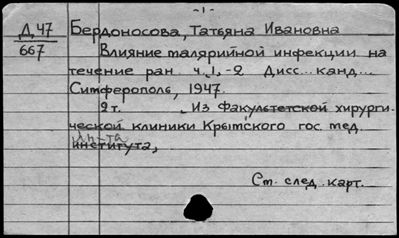 - 1 -
Д 47 Бердоносова, Татьяна Ивановна
667 Влияние малярийной инфекции на
течение ран ч. 1, -2 Дисс... канд...
Симферополь, 1947.
2 т. Из факультетской хирурги-
ческой клиники Крымского гос. мед.
ин-та
института,
См. след. карт.